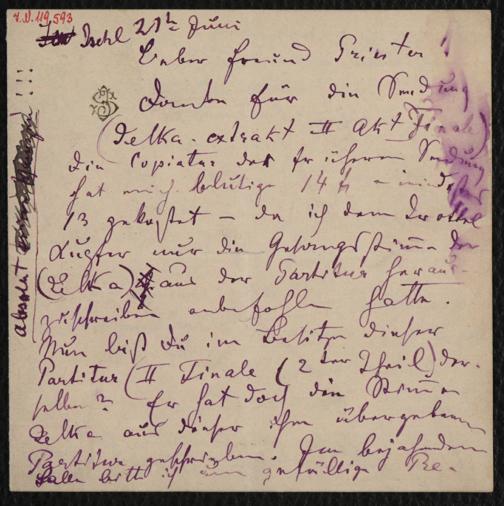 I.N. 119.593
Ischl 21ten Juni
Lieber Freund Priester!
Danke für die Sendung
(Jelka-extrakt II Akt Finale)
Die Copiatur der früheren Sendung
hat mich blutige 14 f
13 gekostet – da ich dem Trottel
nur die Gesangsstimme der
(Jelka) aus der Partitur heraus-
zuschreiben anbefohlen hatte.
Nun bist Du im Besitze dieser
Partitur (II Finale (2ter Theil) der-
selben? Er hat doch die Stimme
Jelka aus dieser ihm übergebenen
Partitur geschrieben. Im bejahenden
Falle bitte ich um gefällige Re-
absolut !!!